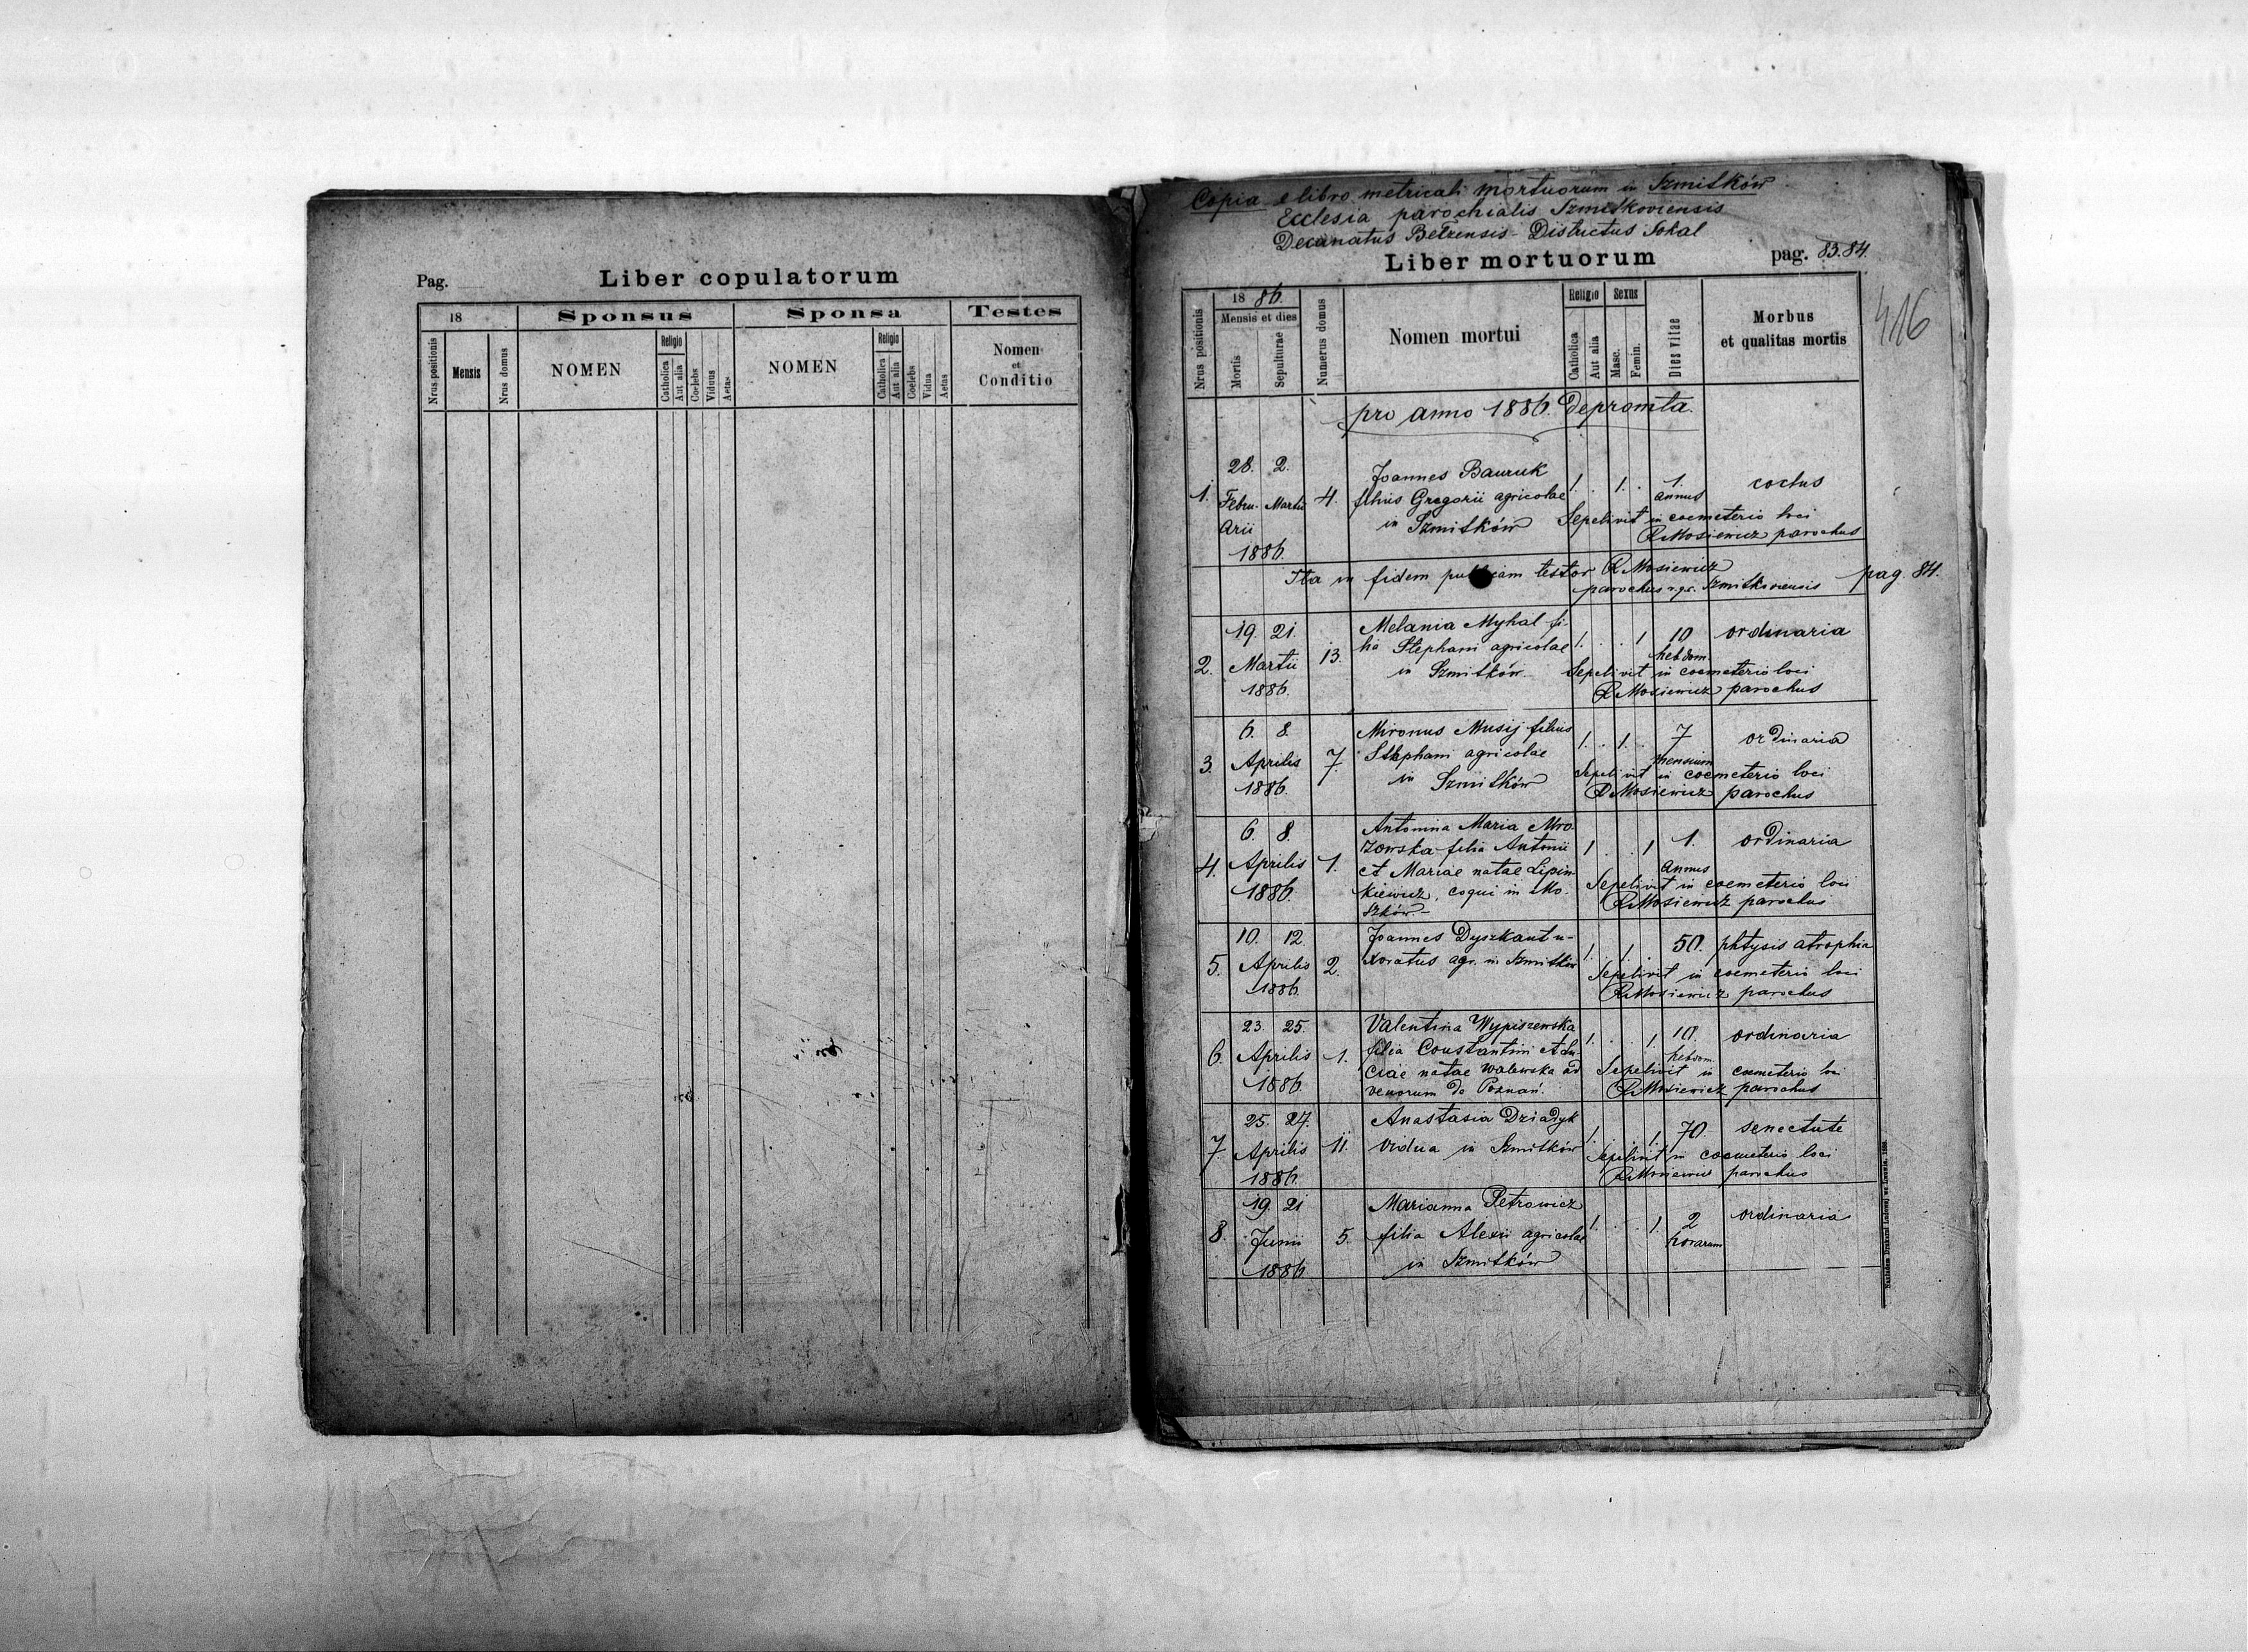 Pag.
Liber copulatorum
18
Sponsus
Sponsa
Testes
Nrus positionis
Mensis
Nrus domus
NOMEN
Religio
Catholica
Aut alia
Coelebs
Viduus
Aetas
NOMEN
Religio
Catholica
Aut alia
Coelebs
Vidua
Aetas
Nomen
et
Conditio
Copia e libro metricali mortuorum in Szmitków
Ecclesia parochialis Szmitkoviensis
Decanatus Belzensis - Districtus Sokal
Liber mortuorum
pag. 83.84.
416
Nrus positionis
1886.
Mensis et dies
Mortis
Sepulturae
Numerus domus
Nomen mortui
Religio
Catholica
Aut alia
Sexus
Masc.
Femin.
Dies vitae
Morbus
et qualitas mortis
pro anno 1886. Depromta.
28. 2. Joannes Bauruk
1. Febru- Martii 4. filius Gregorii agricolae 1. . 1. . 1. annus coctus
arii in Szmitków Sepelivit in coemeterio loci
1886. R Mosiewicz parochus
Ita in fidem publicam testor R Mosiewicz
parochus r.gr. Szmitkoviensis pag. 84.
19. 21. Melania Myhal fi-
2. Martii 13. lia Stephani agricolae 1. . . 1 10 hebdom. ordinaria
1886. in Szmitków. Sepelivit in coemeterio loci
R Mosiewicz parochus
6. 8. Mironus Musij filius
3. Aprilis 7. Stephani agricolae 1. . 1. . 7 mensium ordinaria
1886. in Szmitków Sepelivit in coemeterio loci
R Mosiewicz parochus
6. 8 Antonina Maria Mro-
zowska filia Antonii 1 . . 1 1. annus ordinaria
4. Aprilis 1. et Mariae natae Lipin-
1886. kiewicz, coqui in Mo- Sepelivit in coemeterio loci
szków.- R Mosiewicz parochus
10. 12. Joannes Dyszkant u-
5. Aprilis 2. xoratus agr. in Szmitków 1. . 1. . 50. phtysis atrophia
1886. Sepelivit in coemeterio loci
R Mosiewicz parochus
23. 25. Valentina Wypiszewska
6. Aprilis 1. filia Constantini et Lu- 1. . . 1. 10. hebdom. ordinaria
1886 ciae natae Walewska ad- Sepelivit in coemeterio loci
venorum de Poznań. R Mosiewicz parochus
25. 27. Anastasia Dziadyk
7. Aprilis 11. vidua in Szmitków 1. . . 1. 70. senectute
1886. Sepelivit in coemeterio loci
R Mosiewicz parochus
19. 21 Marianna Petrowicz
8. Junii 5. filia Alexii agricolae 1. . . 1. 2 horarum ordinaria
1886 in Szmitków
Nakładem Drukarni Ludowej we Lwowie.